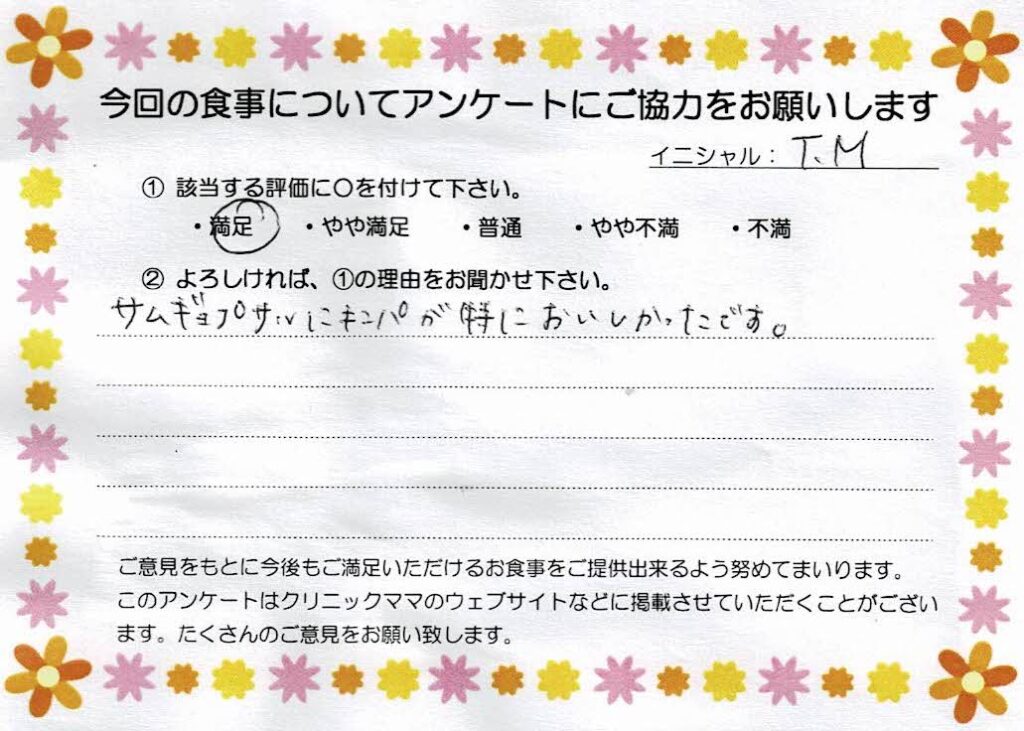 今回の食事についてアンケートにご協力をお願いします
イニシャル： T.M
① 該当する評価に〇を付けて下さい。
・満足 ・やや満足 ・普通 ・やや不満 ・不満
② よろしければ、①の理由をお聞かせ下さい。
サムギョプサルにキンパが特においしかったです。
ご意見をもとに今後もご満足いただけるお食事をご提供出来るよう努めてまいります。
このアンケートはクリニックママのウェブサイトなどに掲載させていただくことがござい
ます。たくさんのご意見をお願い致します。